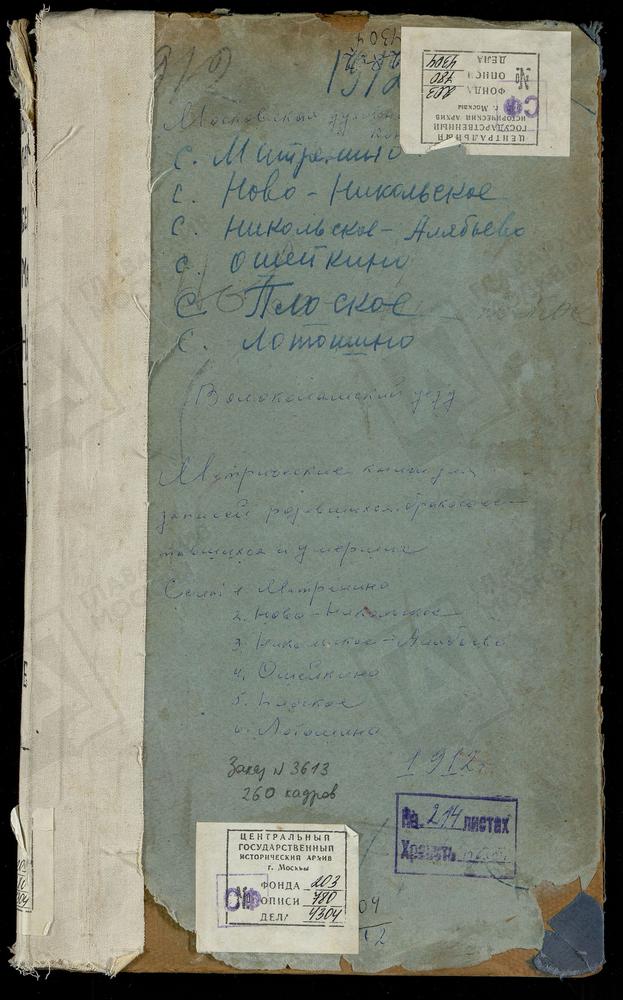 4304
1912
ЦЕНТРАЛЬНЫЙ
ГОСУДАРСТВЕННЫЙ
ИСТОРИЧЕСКИЙ АРХИВ
г. Москвы
ФОНДА 203
№ ОПИСИ 780
ДЕЛА 4304
СФ
Московская
с. Матренино
с. Ново-Никольское
с. Никольское-Алябьево
с. Ошейкино
с. Плоское
с. Лотошино
Волоколамский уезд
Метрические книги для
записей родившихся, бракосоче-
тавшихся и умерших
Село 1. Матренино
2. Ново-Никольское
3. Никольское-Алябьево
4. Ошейкино
5. Плоское
6. Лотошино
Заказ № 3613
260 кадров
1912 г.
На 214 листах
Хранить
ЦЕНТРАЛЬНЫЙ
ГОСУДАРСТВЕННЫЙ
ИСТОРИЧЕСКИЙ АРХИВ
г. Москвы
ФОНДА 203
№ ОПИСИ 780
ДЕЛА 4304
СФ
04